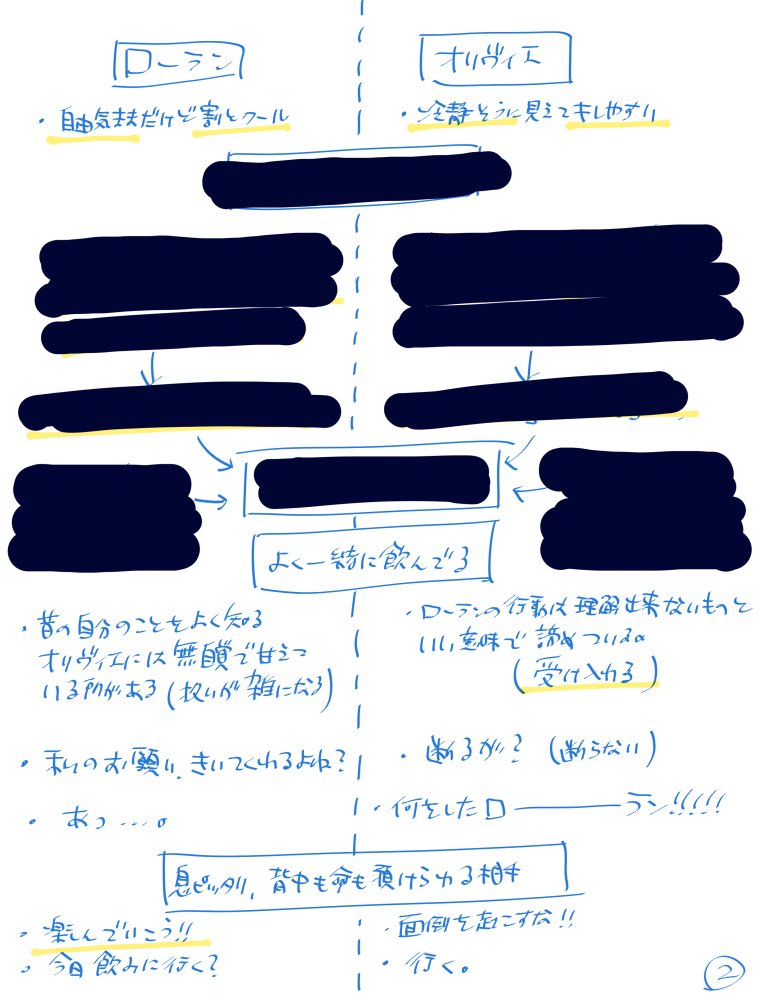 ローラン
・自由気ままだけど割とクール
オリヴィエ
・冷静そうに見えてキレやすい
よく一緒に飲んでる
・昔の自分のことをよく知る
オリヴィエには無自覚で甘えて
いる所がある(扱いが雑になる)
・ローランの行動は理解出来ないものと
いい意味で諦めついてる
(受け入れる)
・私のお願い、きいてくれるよね?
・断るが?(断らない)
・あっ....。
・何をしたローーーラン!!!!!
息ピッタリ、背中も命も預けられる相手
・楽しんでいこう!!
・今日飲みに行く?
・面倒を起こすな!!
・行く。
2